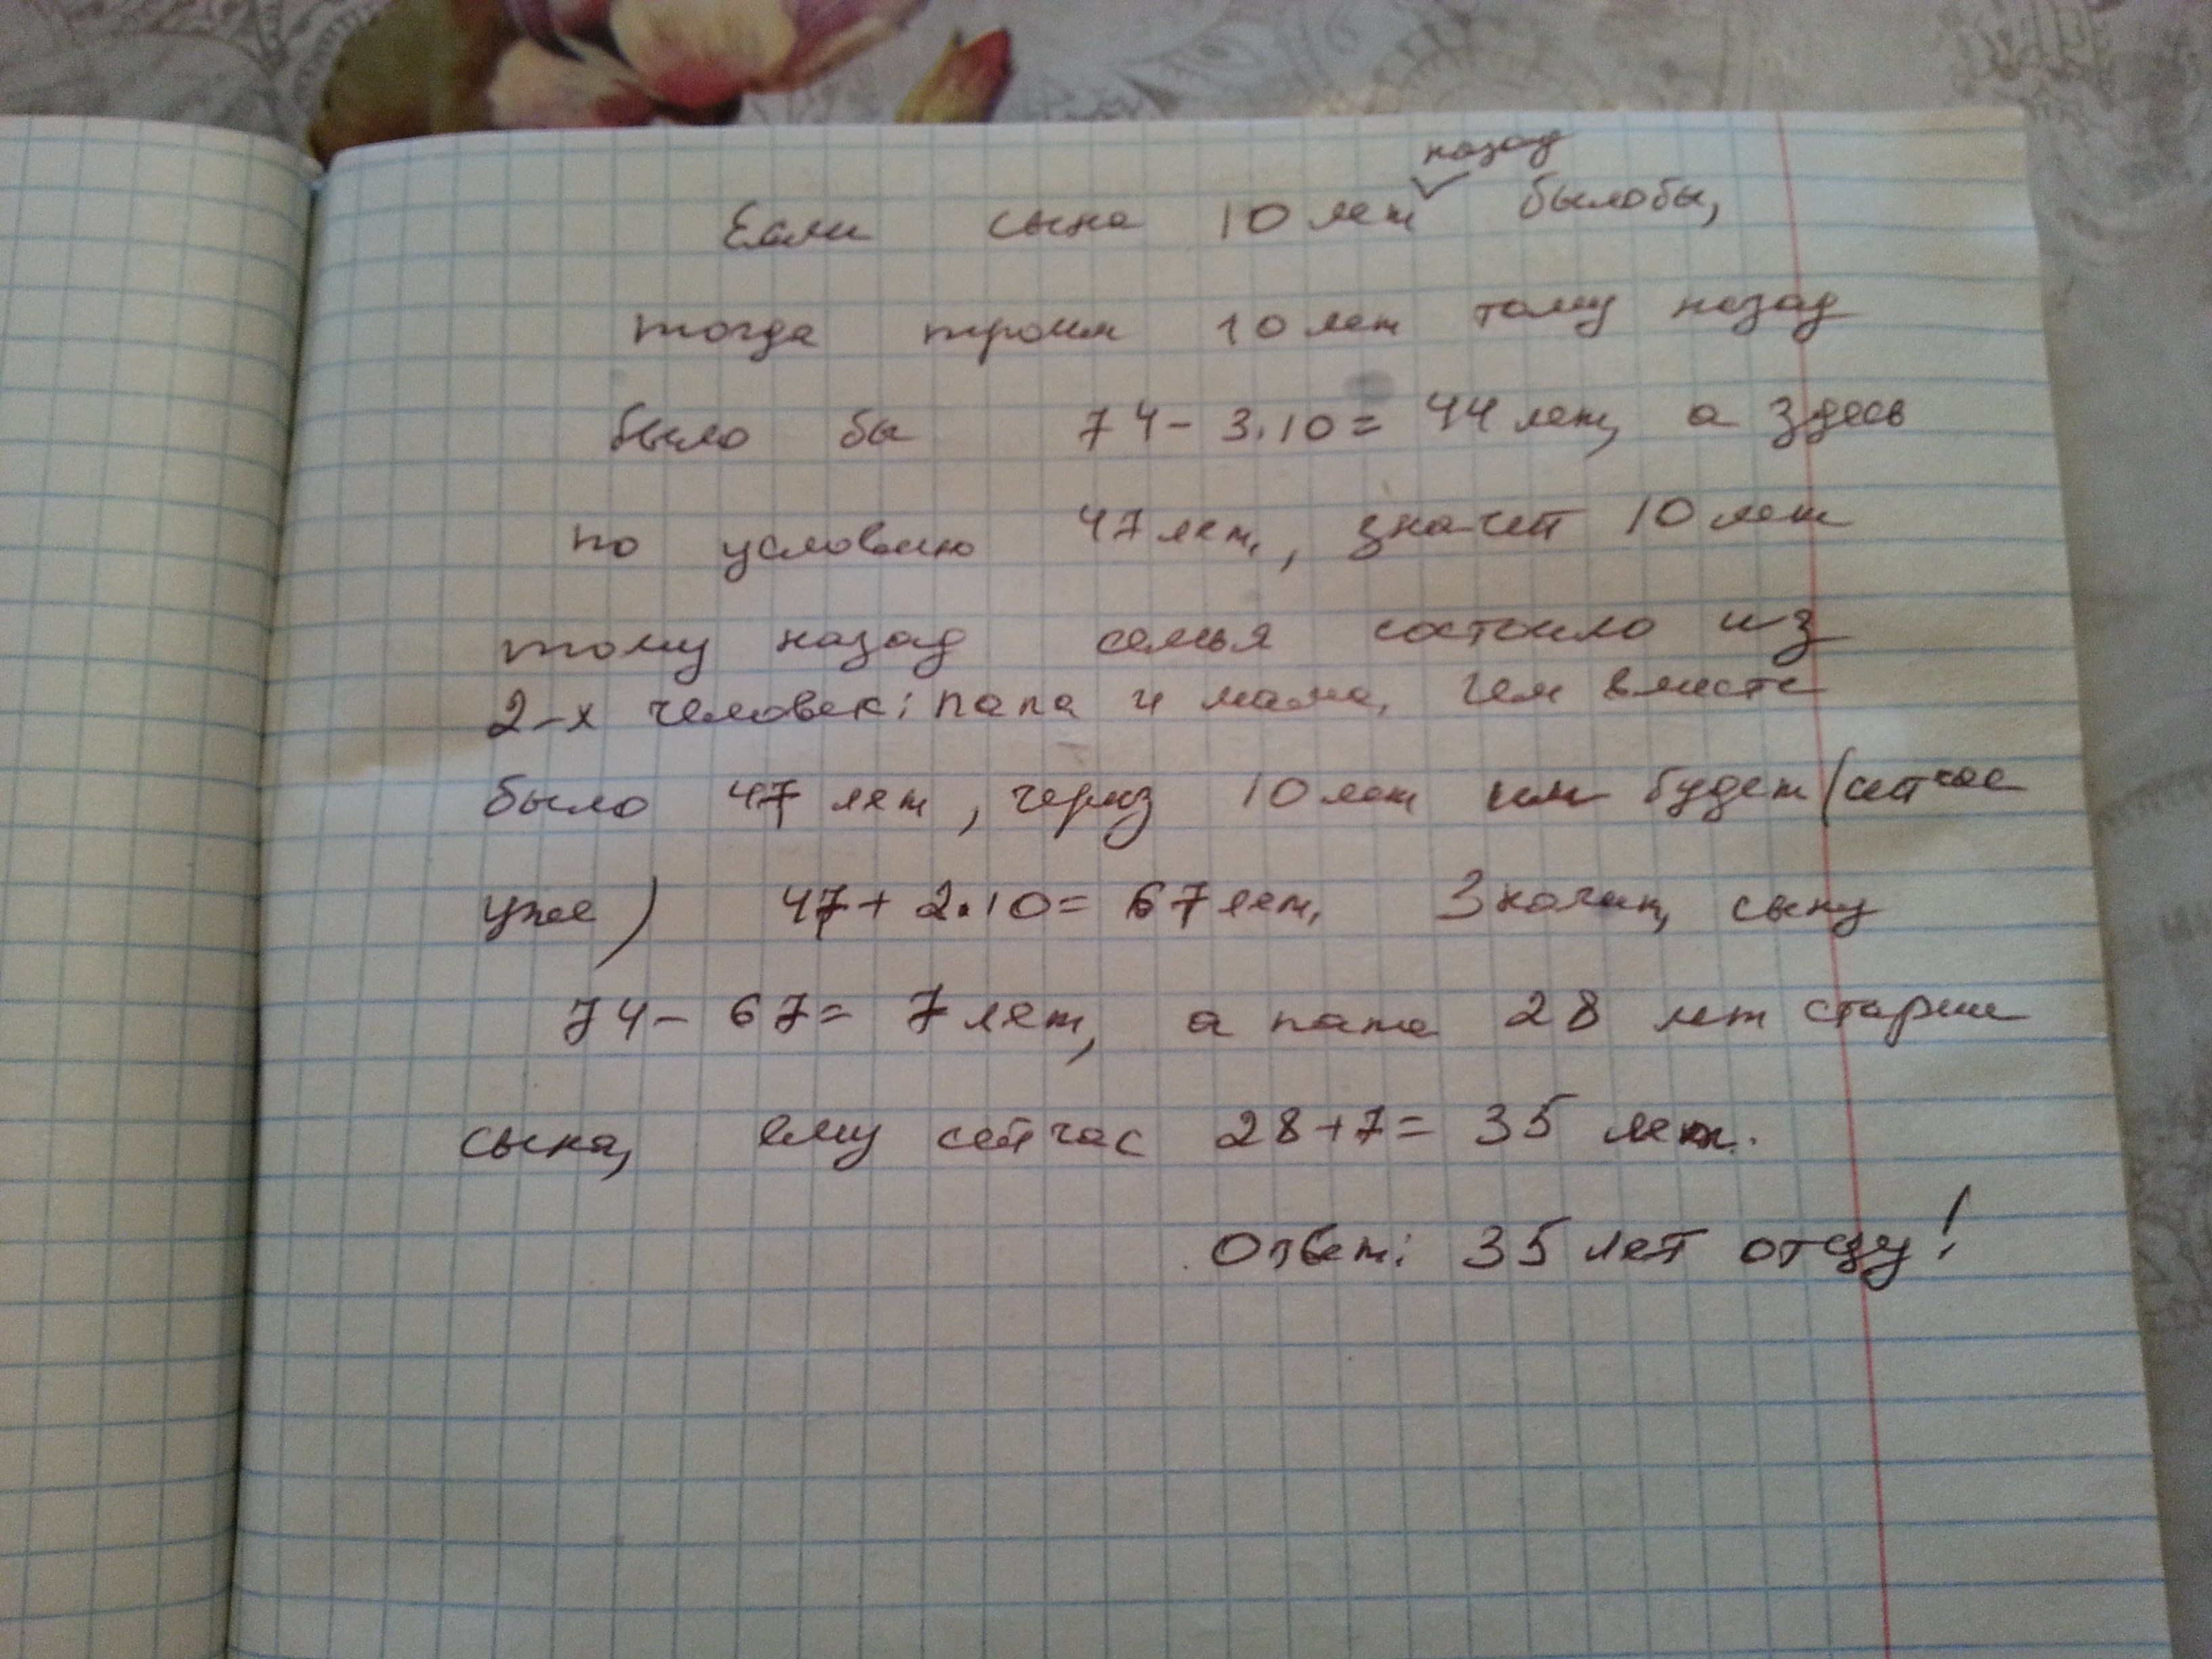 назад
Если сына 10 лет былобы,
тогда троим 10 лет тому назад
было бы 74 - 3.10 = 44 лет, а здесь
по условию 47 лет, значит 10 лет
тому назад семья состояло из
2-х человек: папа и мама, чем вместе
было 47 лет, через 10 лет им будет (сейчас
уже) 47 + 2.10 = 67 лет. Значит, сыну
74 - 67 = 7 лет, а папа 28 лет старше
сына, ему сейчас 28+7 = 35 лет.
Ответ: 35 лет отцу!